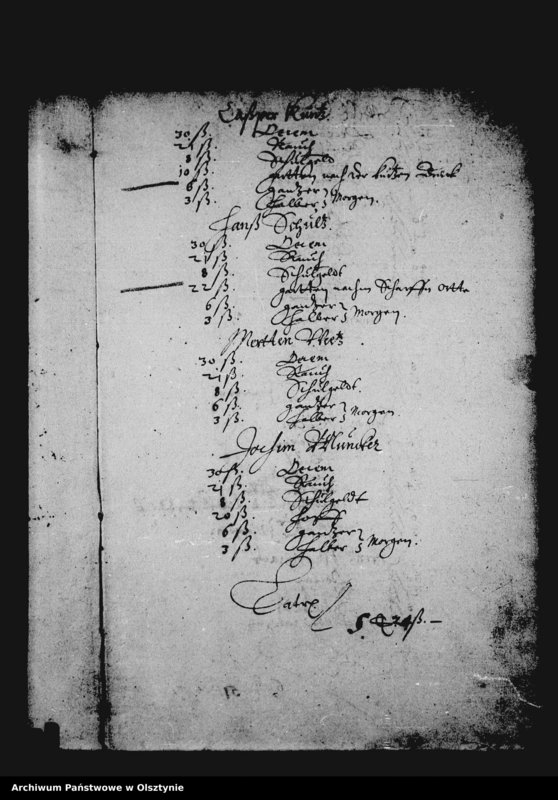 Caßper Kuntz
30 ß. Decem
21 ß. Rauch
8 ß. Schulgeld
10 ß. gartten nach der
6 ß. gantzer
3 ß. halber } Morgen.
Hanß Schultz.
30 ß. Decem
21 ß. Rauch
8 ß. Schulgeldt
22 ß. gartten nachm Scharffn ortte
6 ß. gantzer
3 ß. halber } Morgen.
Mertten
30 ß. Decem
21 ß. Rauch
8 ß. Schulgeldt.
6 ß. gantzer
3 ß. halber } Morgen.
Jochim
30 ß. Decem
21 ß. Rauch
8 ß. Schulgeldt
20 ß.
6 ß. gantzer
3 ß. halber } Morgen.
Latex
Archiwum Państwowe w Olsztynie